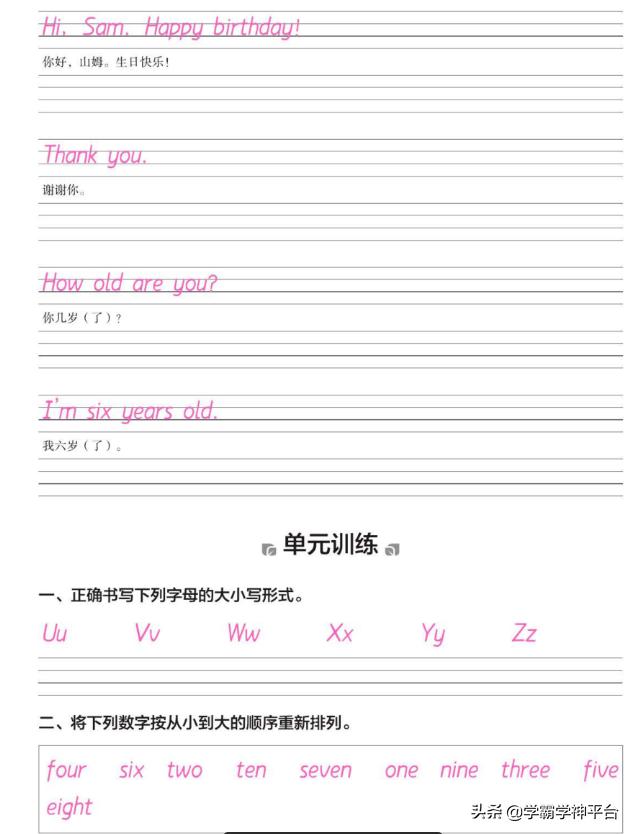 Hi, Sam. Happy birthday!
你好，山姆。生日快乐！
Thank you.
谢谢你。
How old are you?
你几岁（了）?
I'm six years old.
我六岁（了）。
单元训练
一、正确书写下列字母的大小写形式。
Uu Vv Ww Xx Yy Zz
二、将下列数字按从小到大的顺序重新排列。
four six two ten seven one nine three five
eight
头条 @学霸学神平台